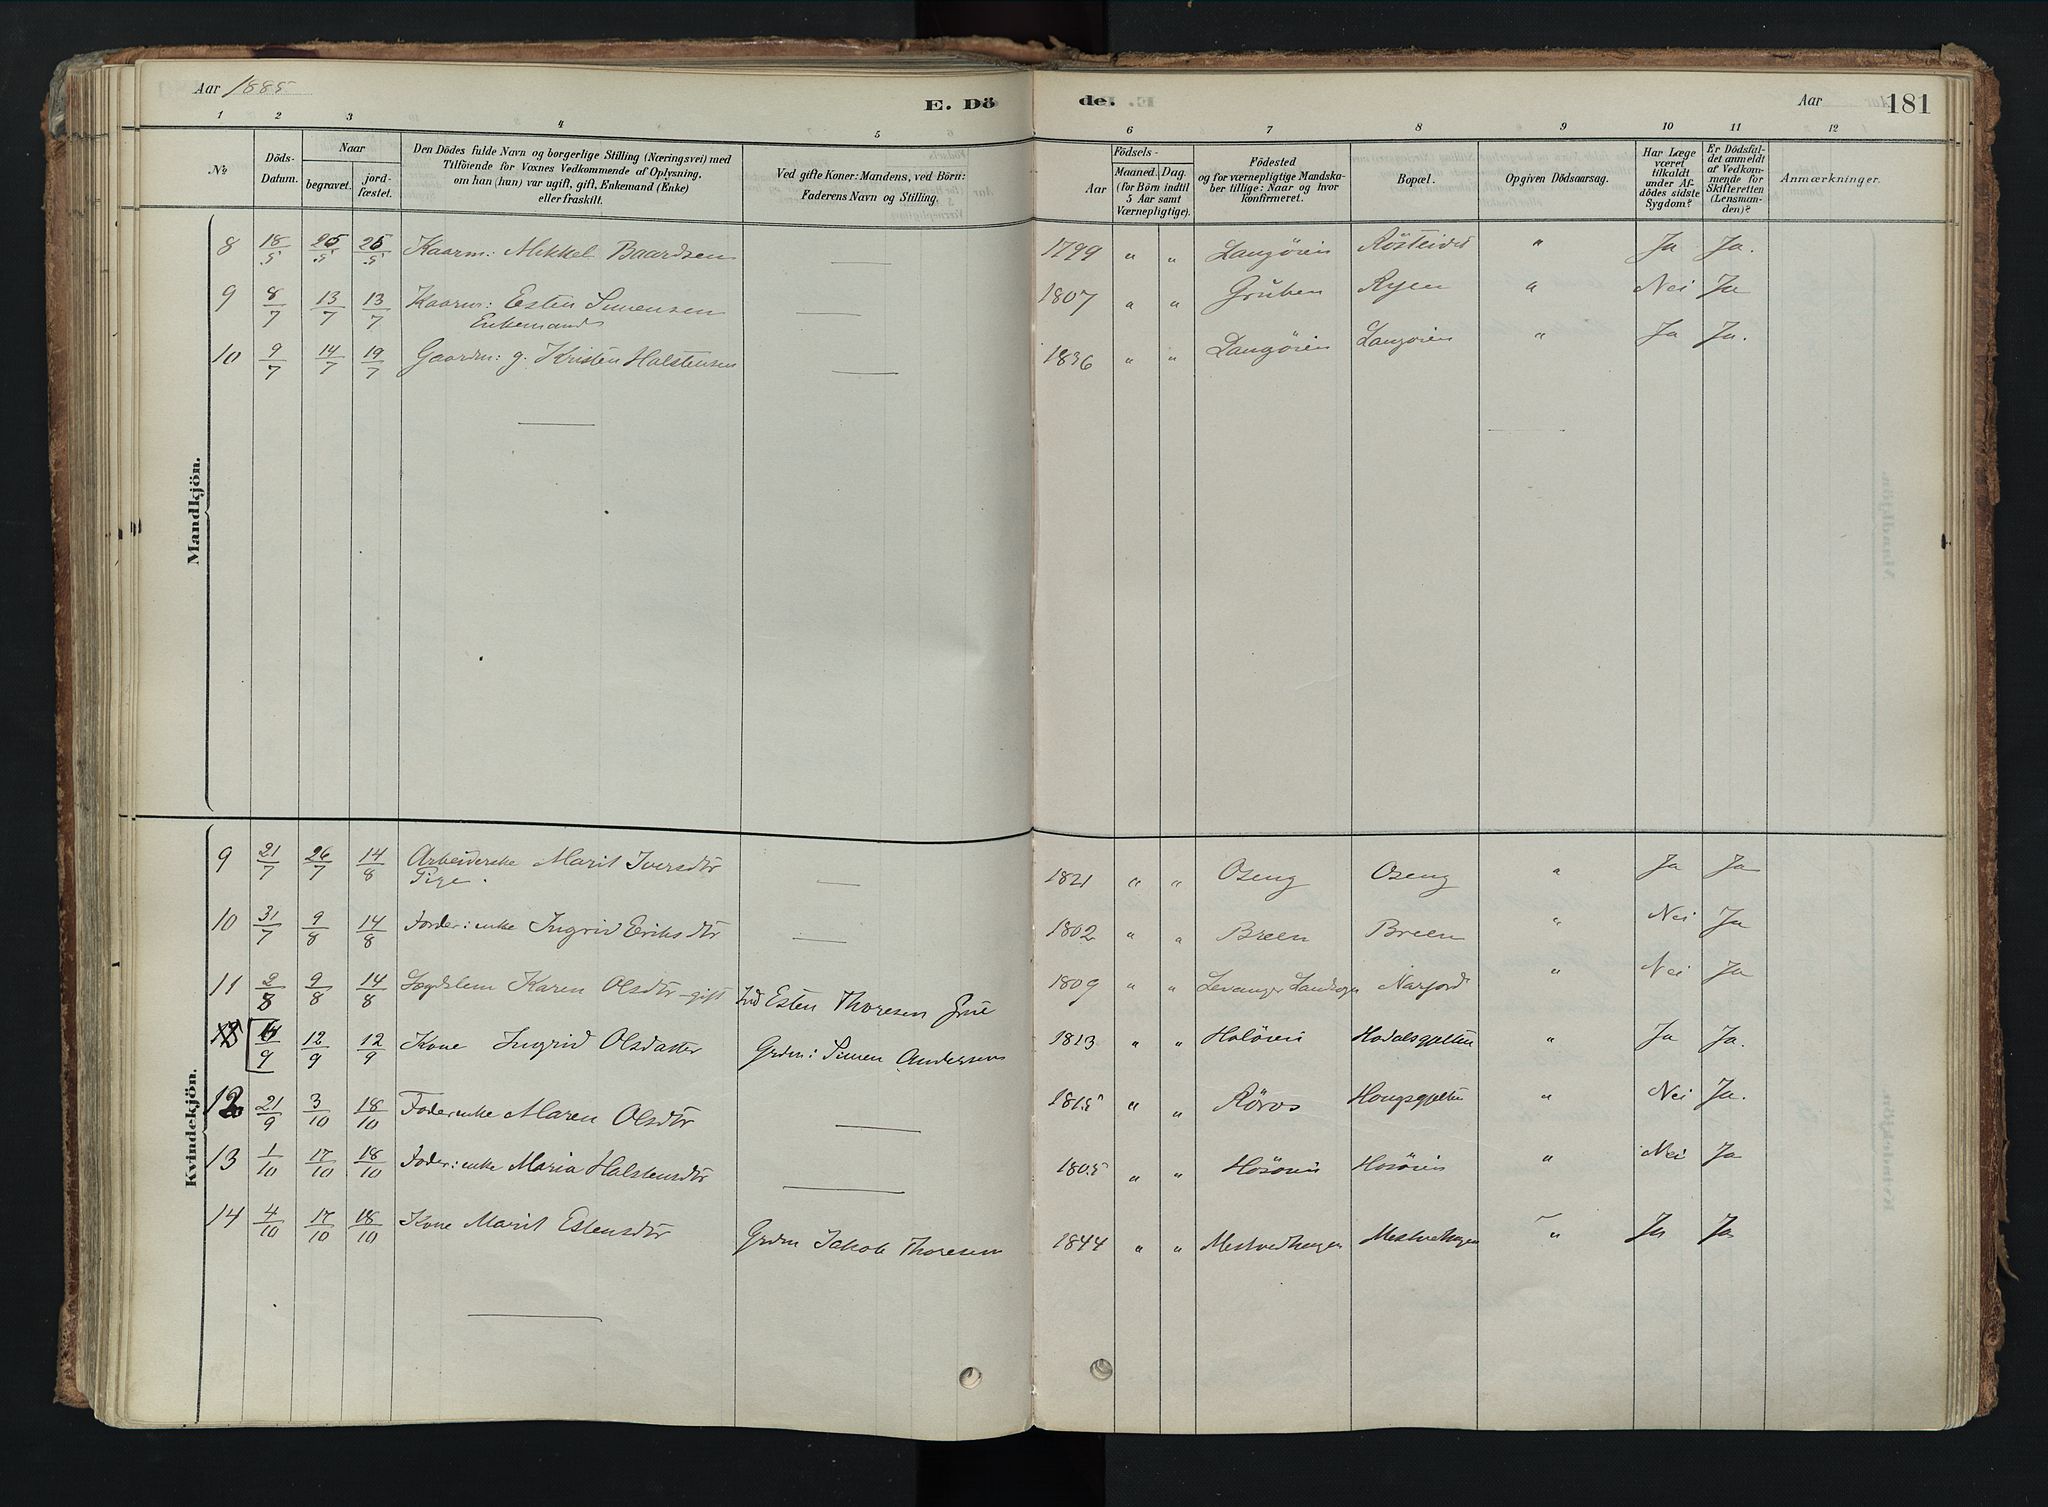 Aar 1885
E. Döde.
Aar
181
1 2 3 4 5 6 7 8 9 10 11 12
No.
Döds-Datum.
Naar
begravet.
jord-fæstet.
Den Dödes fulde Navn og borgerlige Stilling (Næringsvei) med
Tilföiende for Voxnes Vedkommende af Oplysning,
om han (hun) var ugift, gift, Enkemand (Enke)
eller fraskilt.
Ved gifte Koner: Mandens, ved Börn:
Faderens Navn og Stilling.
Födsels-
Aar
Maaned. Dag.
(for Börn indtil
5 Aar samt
Værnepligtige).
Födested
og for værnepligtige Mandska-
ber tillige: Naar og hvor
konfirmeret.
Bopæl.
Opgiven Dödsaarsag.
Har Læge
været
tilkaldt
under Af-
dödes sidste
Sygdom?
Er Dödsfal-
det anmeldt
af Vedkom-
mende for
Skifteretten
(Lensman-
den)?
Anmærkninger.
Mandkjön.
8 18/5 25/5 25/5 Kaarm: Mikkel Baardsen — 1799 " " Langøien " Ja Ja.
9 8/7 13/7 13/7 Kaarm: Esten Simensen — 1807 " " Gruben Ryen " Nei Ja
Enkemand
10 9/7 14/7 19/7 Gaardm: g. Kristen Halstensen — 1836 " " Langøien Langøien " Ja Ja.
Kvindekjön.
9 21/7 26/7 14/8 Arbeiderske Marit Iversdtr — 1821 " " Oseng Oseng " Ja Ja
Pige.
10 31/7 9/8 14/8 Foder: enke Ingrid Eriksdtr — 1802 " " Breen Breen " Nei Ja
11 2/8 9/8 14/8 Lægdslem Karen Olsdtr - gift Ind Esten Thoresen Grue 1809 " " Levanger Landsogn Narjord " Nei Ja
/9 12/9 12/9 Kone Ingrid Olsdatter Grdm: Simen Andersen 1813 " " Holøien Hodalsgjelten " Ja Ja.
12 21/9 3/10 18/10 Foderenke Maren Olsdtr — 1815 " " Røros " Nei Ja.
13 1/10 17/10 18/10 Foder: enke Maria Halstensdtr — 1805 " " Hosøien Hosøien " Nei Ja
14 4/10 17/10 18/10 Kone Marit Estensdtr Grdm Jakob Thoresen 1844 " " " Ja Ja